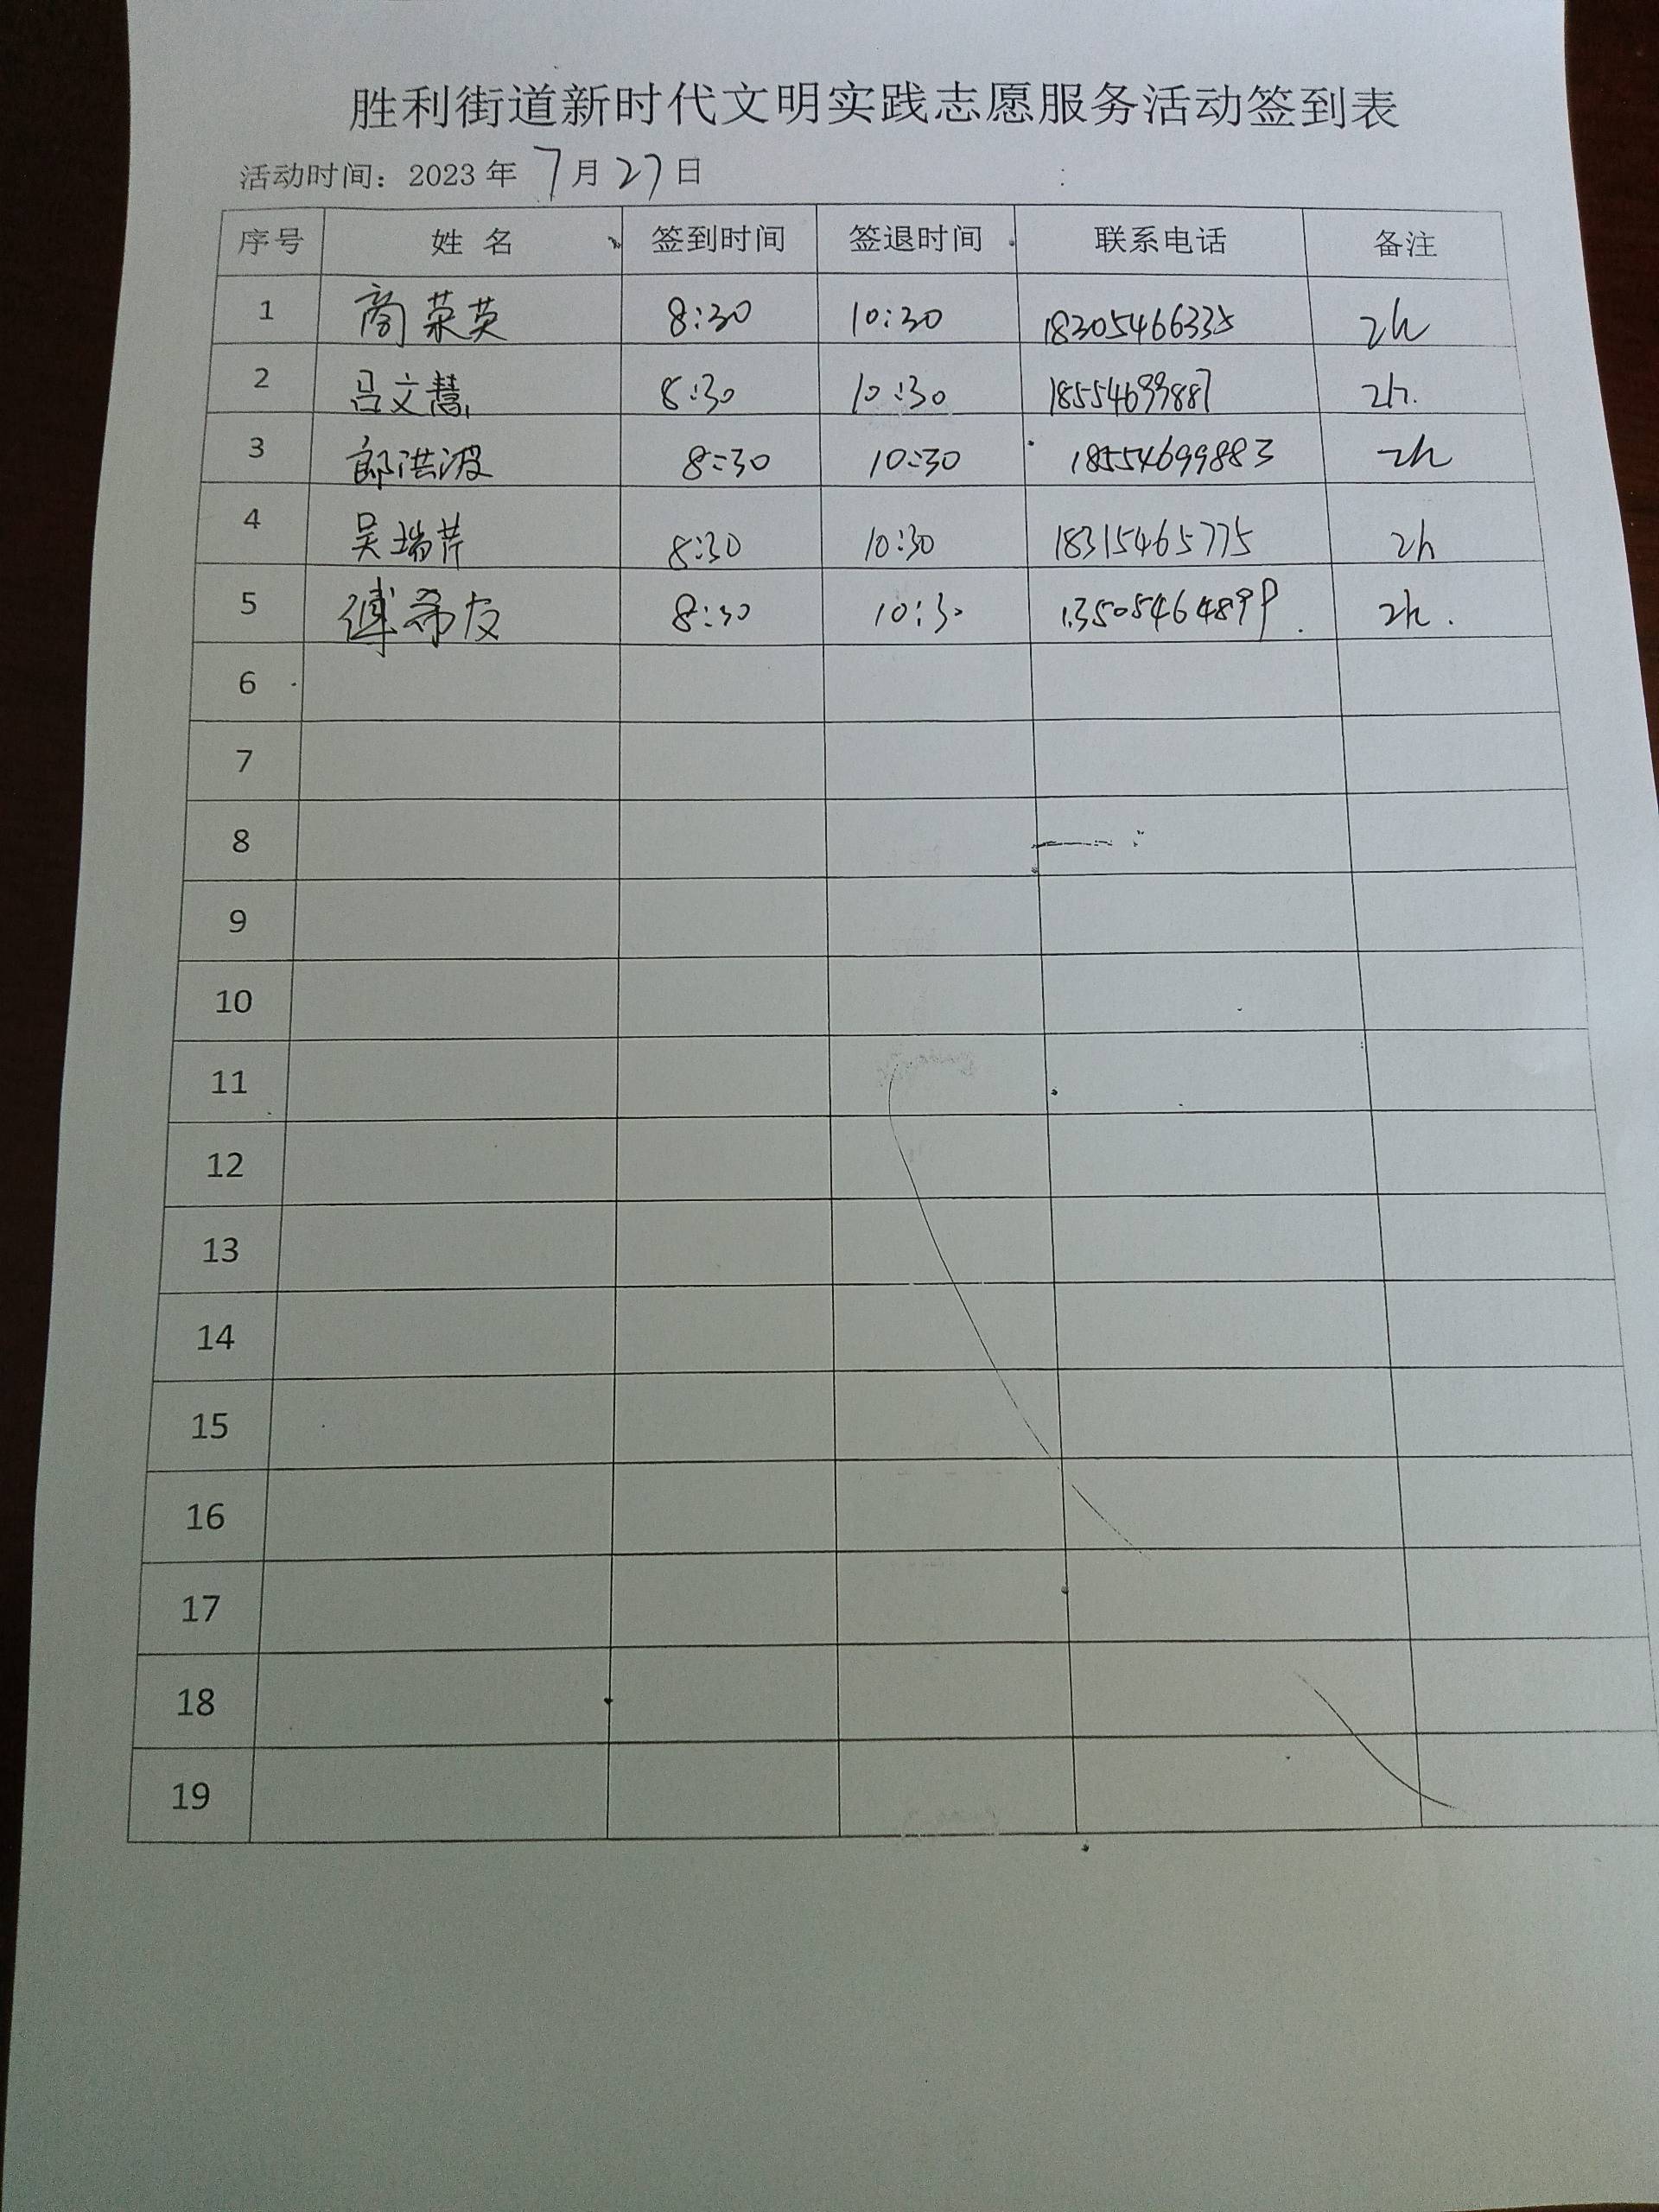 胜利街道新时代文明实践志愿服务活动签到表
活动时间：2023 年 7 月 27 日
序号 姓 名 签到时间 签退时间 联系电话 备注
1 商荣英 8:30 10:30 18305466335 2h
2 吕文慧 8:30 10:30 18554699887 2h.
3 郎洪波 8:30 10:30 18554699883 2h
4 吴瑞芹 8:30 10:30 18315465775 2h
5 傅希友 8:30 10:30 13505464899. 2h.
6
7
8
9
10
11
12
13
14
15
16
17
18
19